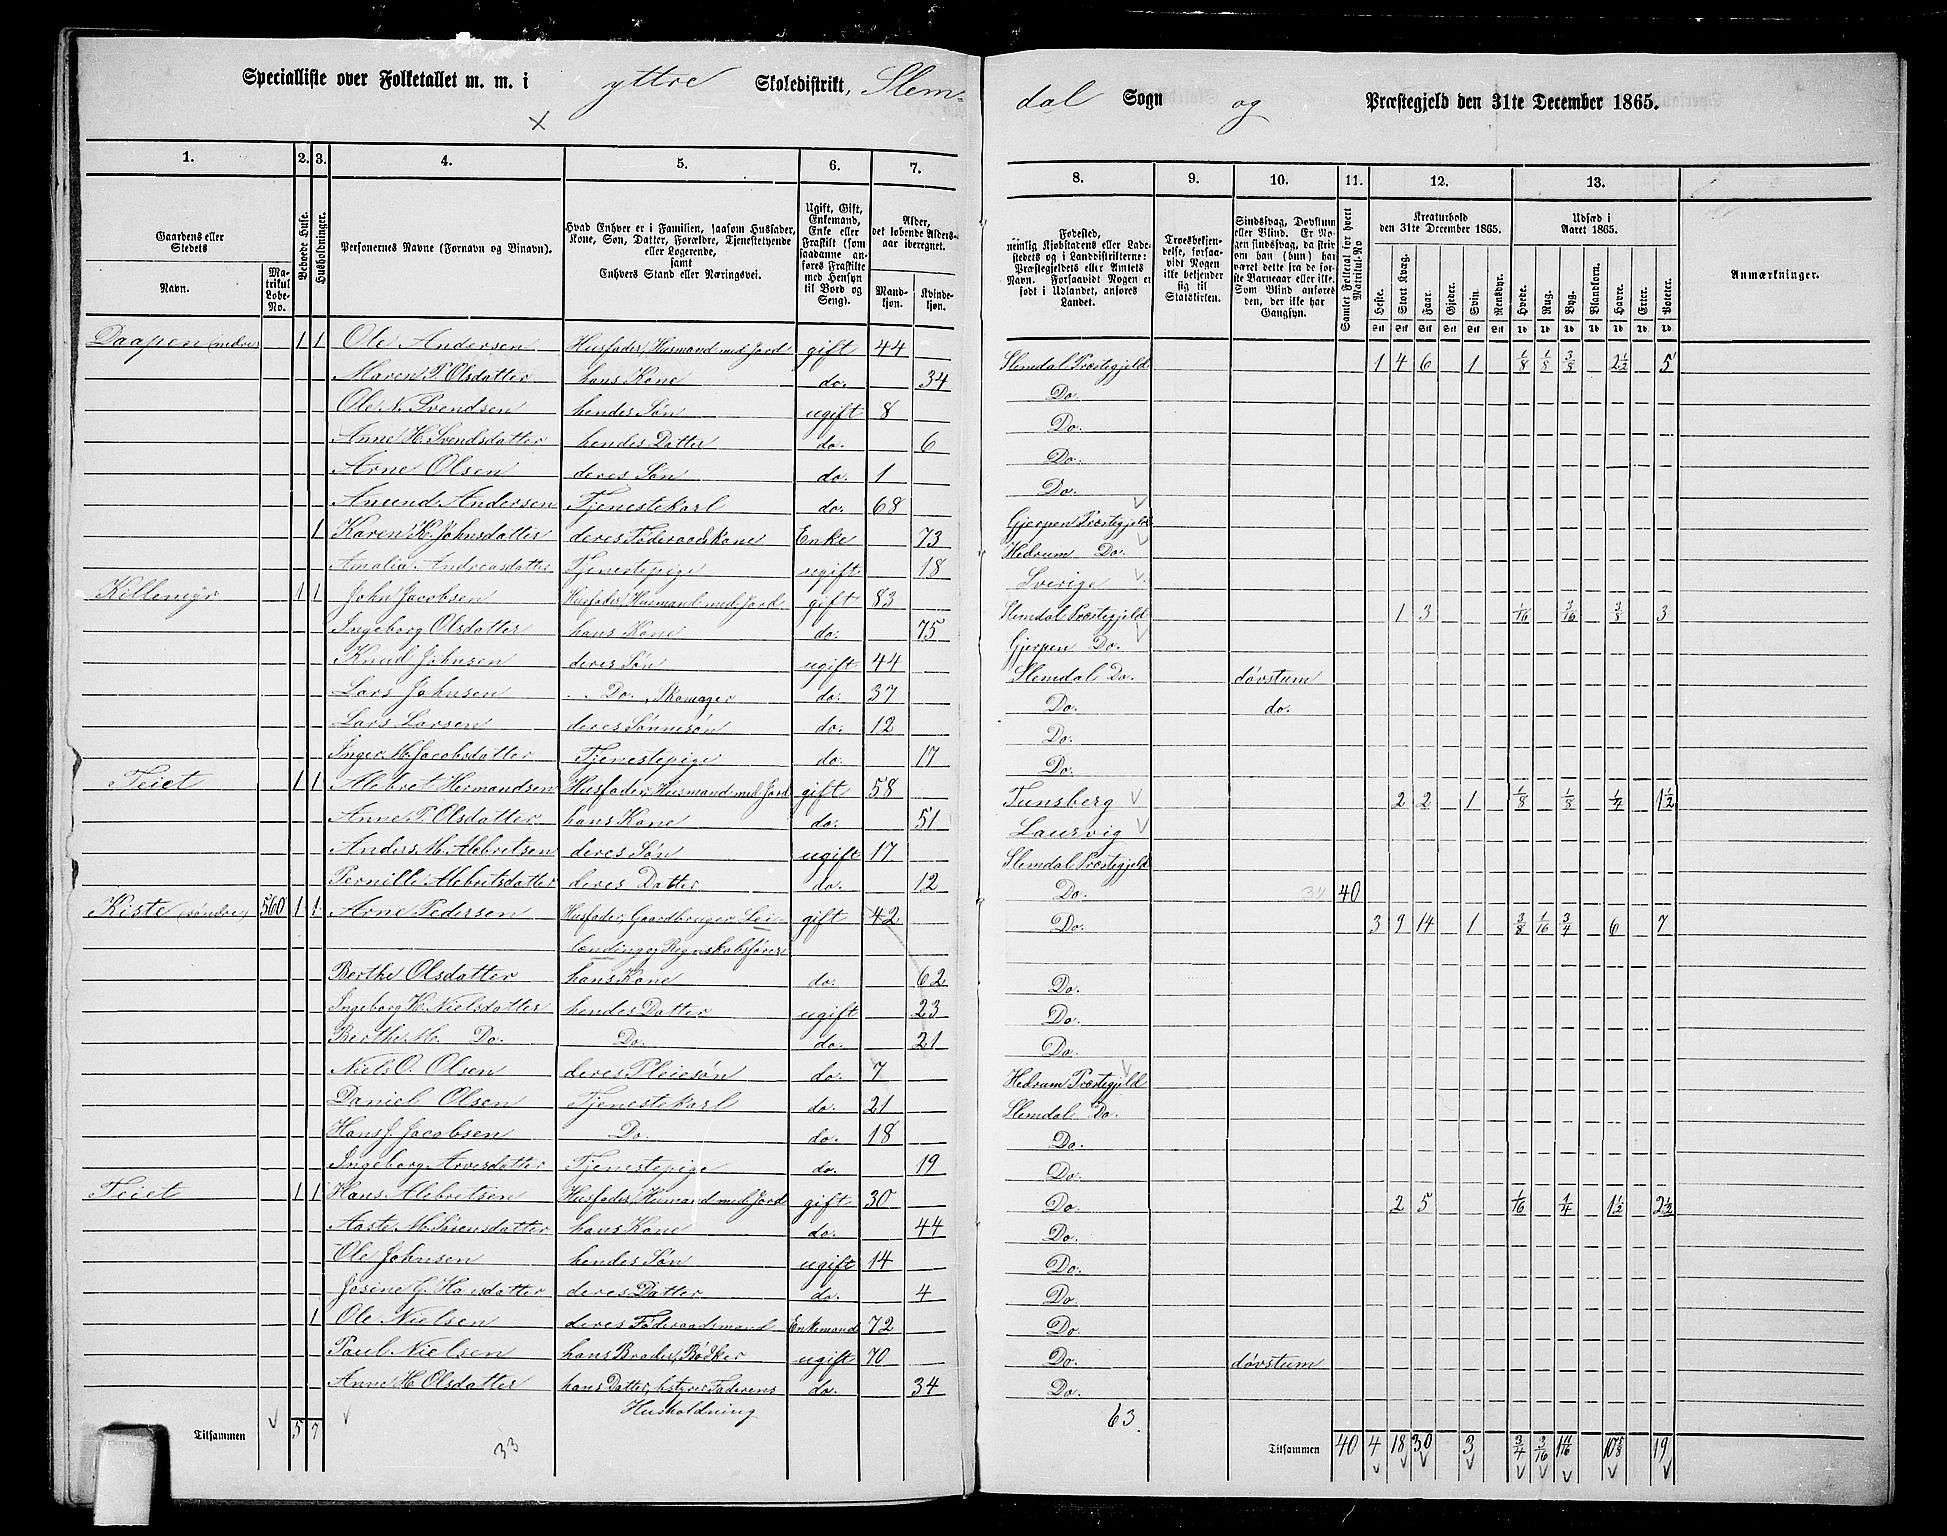 Specialliste over Folketallet m. m. i yttre Skoledistrikt, Slem-
dal Sogn og Præstegjeld den 31te December 1865.
1. 2. 3. 4. 5. 6. 7. 8. 9. 10. 11. 12. 13.
Gaardens eller Stedets Navn. Matrikul Løbe-No. Beboede Huse. Husholdninger. Personernes Navne (Fornavn og Binavn). Hvad Enhver er i Familien, saasom Husfader, Kone, Søn, Datter, Forældre, Tjenestetyende eller Logerende, samt Enhvers Stand eller Næringsvei. Ugift, Gift, Enkemand, Enke eller Fraskilt (som saadanne anføres Fraskilte med Hensyn til Bord og Seng). Alder, det løbende Aldersaar iberegnet. Mandkjøn. Kvindekjøn.
Fødested, nemlig Kjøbstadens eller Ladestedets og i Landdistrikterne: Præstegjeldets eller Amtets Navn. Forsaavidt Nogen er født i Udlandet, anføres Landet. Troesbekjendelse, forsaavidt Nogen ikke bekjender sig til Statskirken. Sindssvag, Døvstum eller Blind. Er Nogen sindssvag, da skrives om han (hun) har været dette fra de første Barneaar eller ikke. Som Blind anføres den, der ikke har Gangsyn. Samlet Folketal for hvert Matrikul-No. Kreaturhold den 31te December 1865. Heste. Stort Kvæg. Faar. Gjeder. Svin. Rensdyr. Udsæd i Aaret 1865. Hvede. Rug. Byg. Blandkorn. Havre. Erter. Poteter. Anmærkninger.
Daapen (nedre) 1 1 Ole Andersen Husfader, Husmand med Jord gift 44 Slemdal Præstegjeld 1 4 6 1 1/8 1/8 3/8 2 1/2 5
Maren P. Olsdatter hans Kone do. 34 Do.
Ole N. Svendsen hendes Søn ugift 8 Do.
Anne H. Svendsdatter hendes Datter do. 6 Do.
Arne Olsen deres Søn do. 1 Do.
Amund Andersen Tjenestekarl do. 68 Gjerpen Præstegjeld
1 Karen K. Johnsdatter deres Føderaadskone Enke 73 Hedrum Do.
Amalia Andreasdatter Tjenestepige ugift 18 Sverige
Killemyr 1 1 John Jacobsen Husfader, Husmand med Jord gift 83 Slemdal Præstegjeld 1 3 1/16 3/16 3/8 3
Ingeborg Olsdatter hans Kone do. 75 Gjerpen Do.
Knud Johnsen deres Søn ugift 44 Slemdal Do. døvstum
Lars Johnsen Do. Skomager do. 37 Do. do.
Lars Larsen deres Sønnesøn do. 12 Do.
Inger M. Jacobsdatter Tjenestepige do. 17 Do.
Teiet 1 1 Alebret Hermandsen Husfader, Husmand med Jord gift 58 Tunsberg 2 2 1 1/8 1/8 1/4 1 1/2
Anne P. Olsdatter hans Kone do. 51 Laurvig
Anders M. Alebretsen deres Søn ugift 17 Slemdal Præstegjeld
Pernille Alebretsdatter deres Datter do. 12 Do. 34 40
Kiste (søndre) 560 1 1 Arne Pedersen Husfader, Gaardbruger, Lei- gift 42 Do. 3 9 14 1 3/8 1/16 3/4 6 7
lændinge, Regnskabsfører
Berthe Olsdatter hans Kone do. 62 Do.
Ingeborg K. Nielsdatter hendes Datter ugift 23 Do.
Berthe M. Do. Do. do. 21 Do.
Niels O. Olsen deres Pleiesøn do. 7 Hedrum Præstegjeld
Daniel Olsen Tjenestekarl do. 21 Slemdal Do.
Hans J. Jacobsen Do. do. 18 Do.
Ingeborg Arvesdatter Tjenestepige do. 19 Do.
Teiet 1 1 Hans Alebretsen Husfader, Husmand med Jord gift 30 Do. 2 5 1/16 1/4 1 1/2 2 1/2
Aaste M. Sørensdatter hans Kone do. 44 Do.
Ole Johnsen hendes Søn ugift 14 Do.
Josine G. Hansdatter deres Datter do. 4 Do.
1 Ole Nielsen deres Føderaadsmand Enkemand 72 Do.
Paul Nielsen hans Broder, Bødker ugift 70 Do. døvstum
Anne H. Olsdatter hans Datter, bstyrer Faderens do. 34 Do.
Husholdning
63
Tilsammen 5 7 Tilsammen 40 4 18 30 3 3/4 3/16 10 5/8 19
33